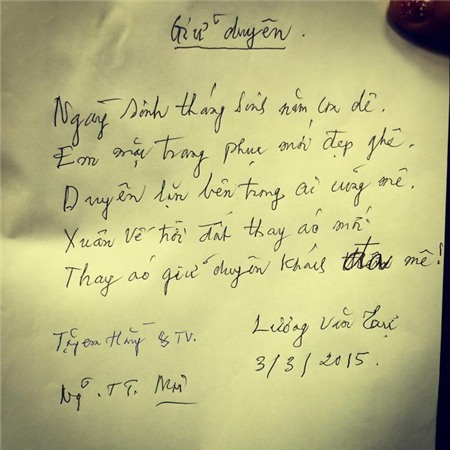 Giữ duyên.
Ngày sinh tháng sinh năm con dê.
Em mặc trang phục mới đẹp ghê.
Duyên lặn bên trong ai cũng mê.
Xuân về trời đất thay áo mới
Thay áo giữ duyên khách mê!
Tặng em Hằng TV.
Lương Văn
3/3/2015.
TT.